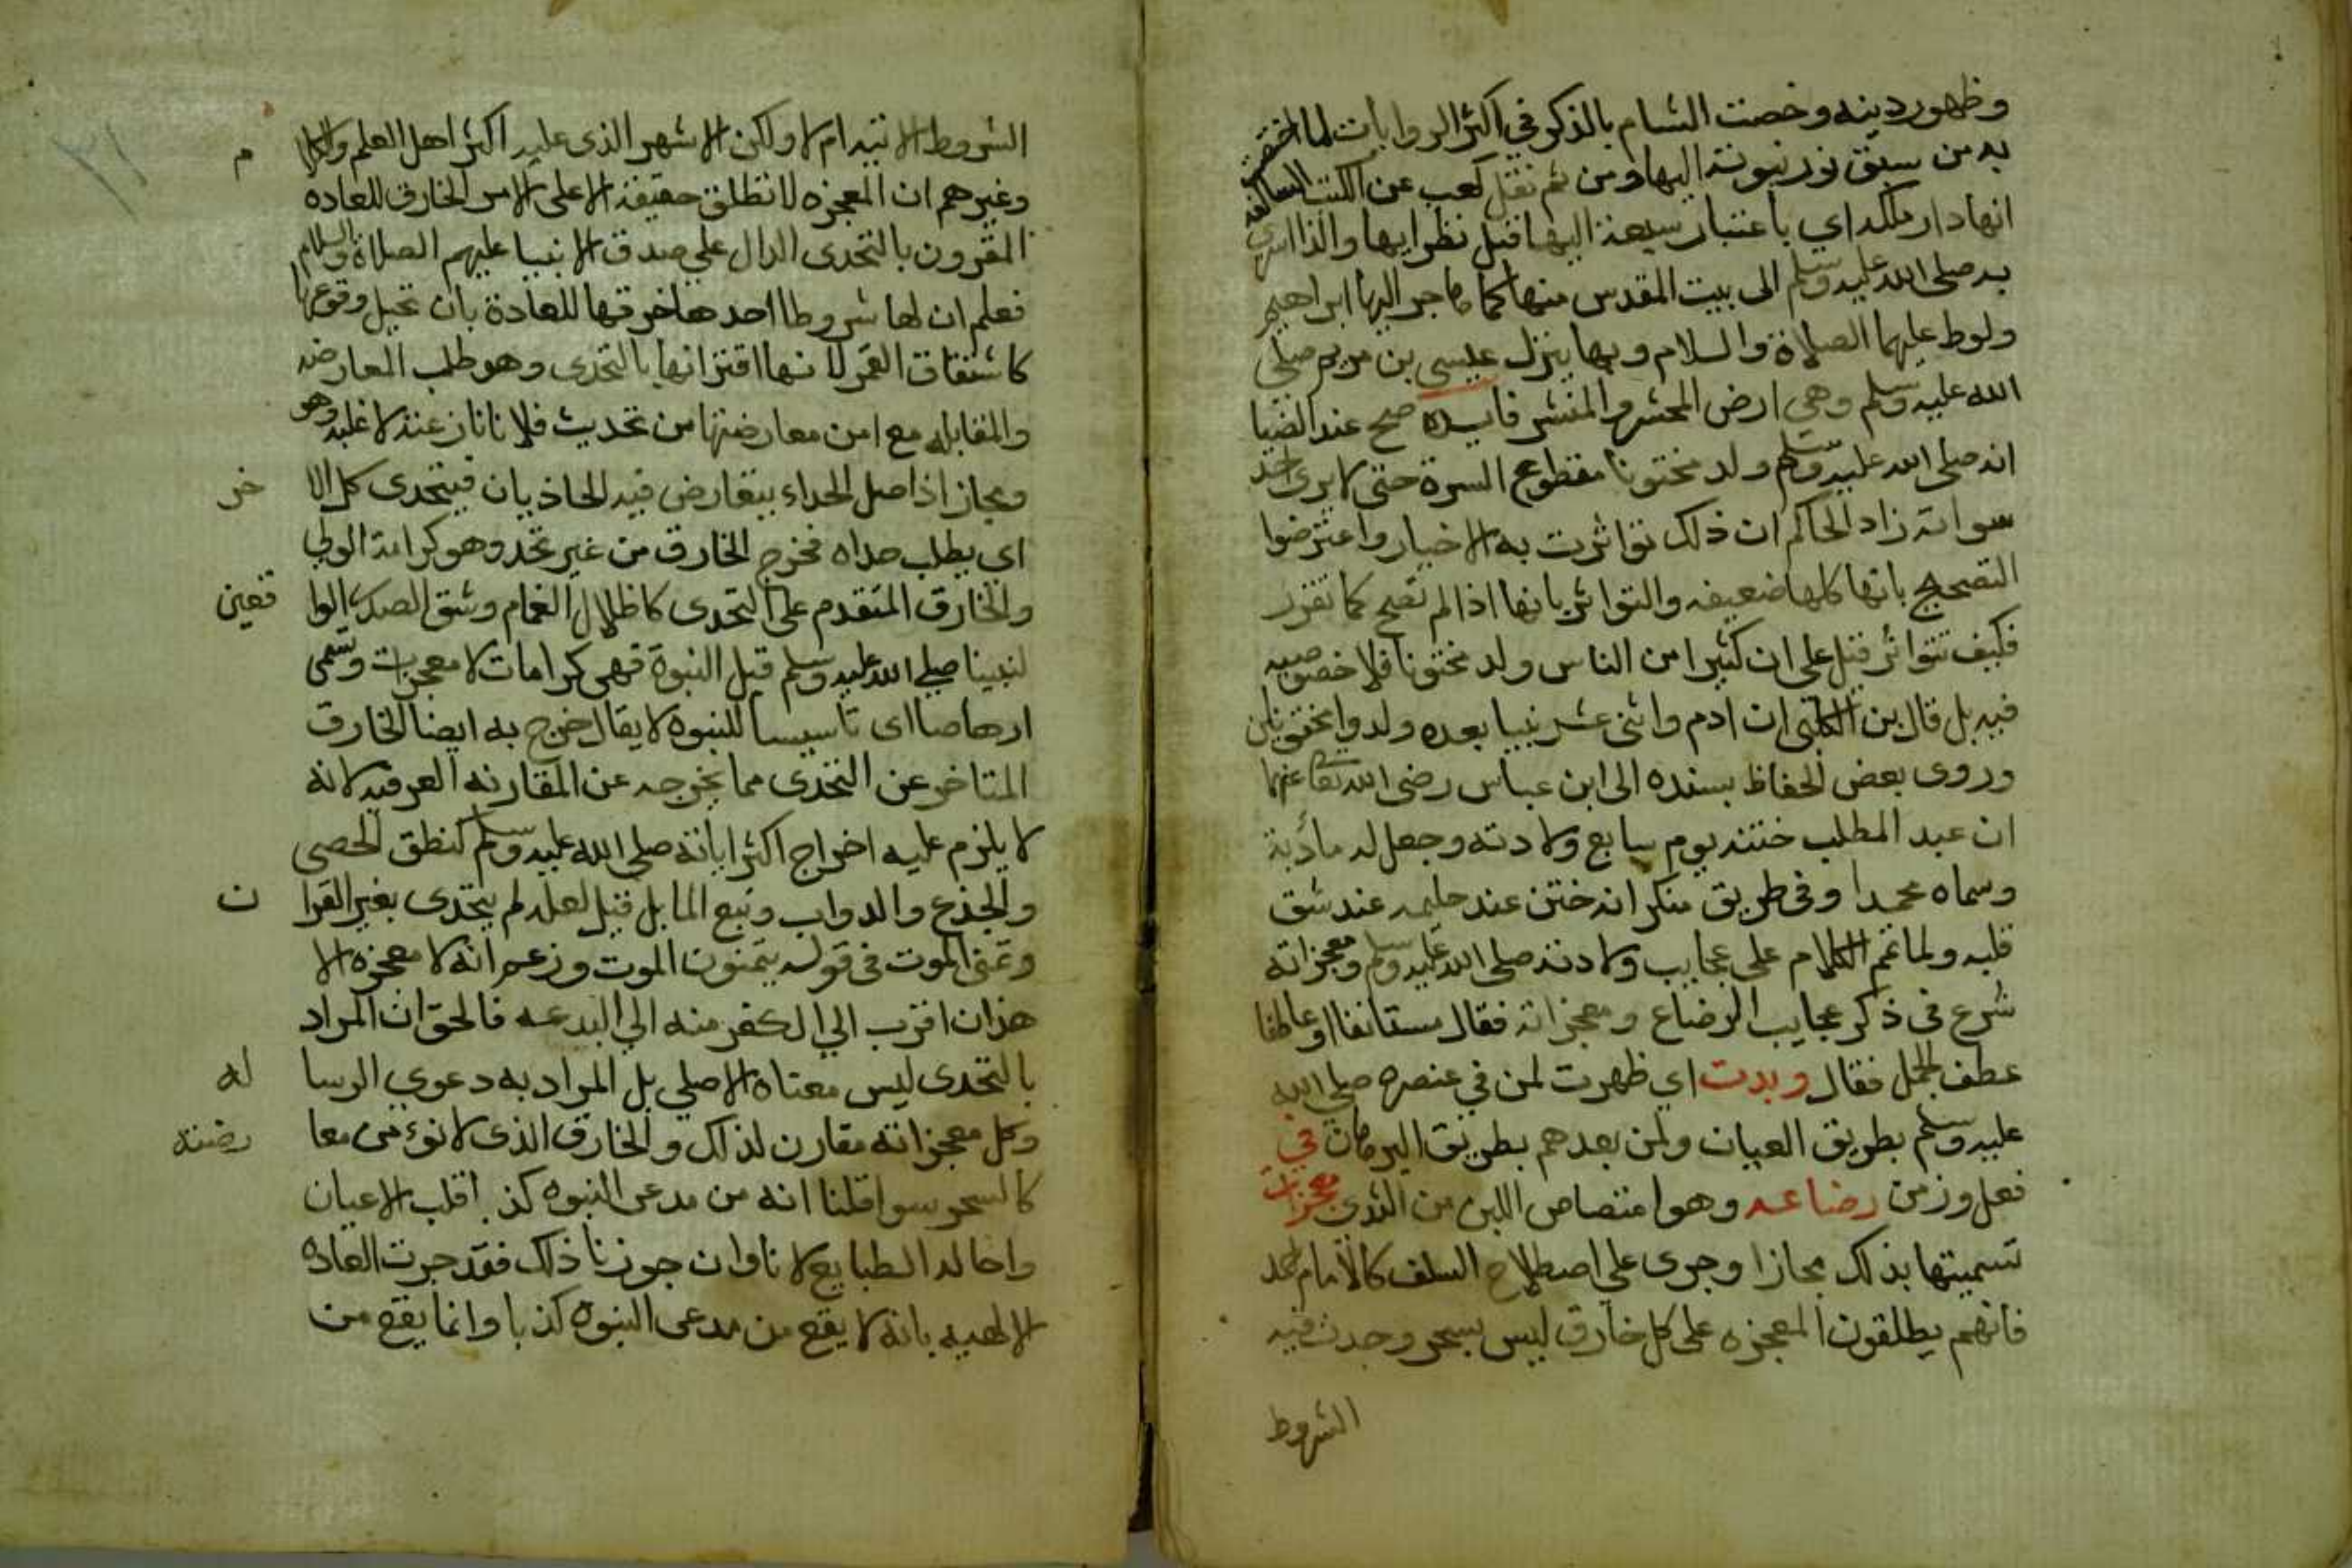 وظهور دينه وخصت الشام بالذكر في اكثر الروايات لما اختصت
به من سبق نور نبوته اليها ومن ثم نقل كعب عن الكتب السالفه
انها دار ملكه اي باعتبار سبقه اليها قبل نظرايها ولذا اسري
به صلى الله عليه وسلم الى بيت المقدس منها كما هاجر اليها ابراهيم
ولوط عليهما الصلاة والسلام وبها ينزل عيسى بن مريم صلى
الله عليه وسلم وهي ارض المحشر والمنشر فايده صح عند الضيا
انه صلى الله عليه وسلم ولد مختونا مقطوع السرة حتى لا يرى احد
سواته زاد الحاكم ان ذلك تواترت به الاخبار واعترضوا
التصحيح بانها كلها ضعيفه والتواتر بانها اذا لم تصح كما تقرر
فكيف تتواتر قيل على ان كثيرا من الناس ولد مختونا فلا خصوصيه
فيه بل قال بن الكلبي ان ادم واثنى عشر نبيا بعده ولدوا مختونين
وروى بعض الحفاظ بسنده الى ابن عباس رضى الله تعا عنهما
ان عبد المطلب ختنه يوم سابع ولادته وجعل له مأدبة
وسماه محمدا وفي طريق منكر انه ختن عند حليمه عند شق
قلبه ولما تم الكلام على عجايب ولادته صلى الله عليه وسلم ومعجزاته
شرع في ذكر عجايب الرضاع ومعجزاته فقال مستانفا او عاطفا
عطف الجمل فقال وبدت اي ظهرت لمن في عنصره صلى الله
عليه وسلم بطريق العيان ولمن بعدهم بطريق البرهان في
فعل وزمن رضاعه وهو امتصاص اللبن من الثدي معجزات
تسميتها بذلك مجازا وجرى على اصطلاح السلف كالامام احمد
فانهم يطلقون المعجزه على كل خارق ليس بسحر وجدت فيه
الشروط
الشروط الاتيه ام لا ولكن الاشهر الذي عليه اكثر اهل العلم والكلا م
وغيرهم ان المعجزه لا تطلق حقيقة الا على الامر الخارق للعاده
المقرون بالتحدى الدال على صدق الانبيا عليهم الصلاة والسلام
فعلم ان لها شروطا احدها خرقها للعادة بان تحيل وقوعها
كانشقاق القمر ثانيها اقترانها بالتحدى وهو طلب المعارضه
والمقابله مع امن معارضتها من تحديت فلانا نازعته لاغلبه وهو
مجاز اذ اصل الحداء يتعارض فيه الحاذيان فيتحدى كل الا خر
اى يطلب حداه فخرج الخارق من غير تحد وهو كرامة الولى
والخارق المتقدم على التحدى كاظلال الغمام وشق الصدر الوا قعين
لنبينا صلى الله عليه وسلم قبل النبوة فهي كرامات لا معجزات وتسمى
ارهاصا اى تاسيسا للنبوه لا يقال خرج به ايضا الخارق
المتاخر عن التحدى مما يخرجه عن المقارنه العرفيه لانه
لا يلزم عليه اخراج اكثر اياته صلى الله عليه وسلم كنطق الحصى
والجذع والدواب ونبع الما بل قيل لعله لم يتحدى بغير القرا ن
وتمنى الموت في قوله يتمنون الموت وزعم انه لا معجزه الا
هذان اقرب الى الكفر منه الى البدعه فالحق ان المراد
بالتحدى ليس معناه الاصلي بل المراد به دعوي الرسا له
وكل معجزاته مقارن لذلك والخارق الذي لا تؤمن معا رضته
كالسحر سوا قلنا انه من مدعى النبوه كذبا قلب الاعيان
واحاله الطبايع لانا وان جوزنا ذلك فقد جرت العاده
الالهيه بانه لا يقع من مدعى النبوة كذبا وانما يقع من